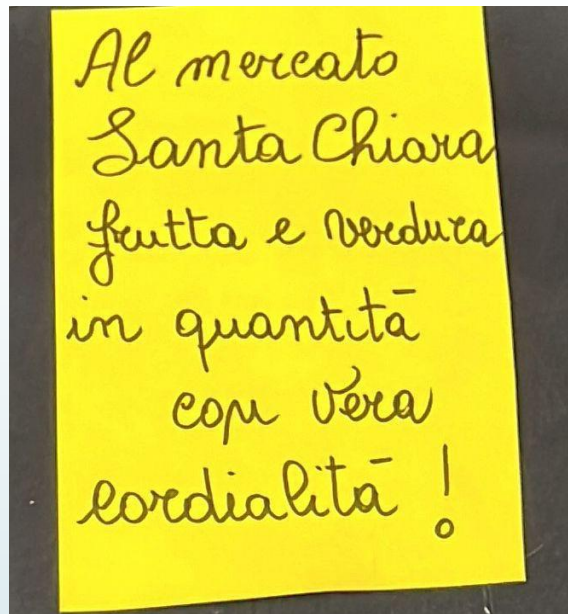 Al mercato
Santa Chiara
frutta e verdura
in quantità
con vera
cordialità!